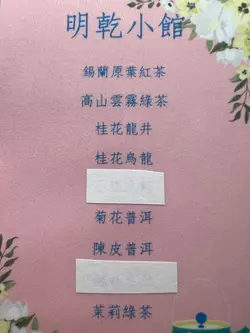 明乾小館
錫蘭原葉紅茶
高山雲霧綠茶
桂花龍井
桂花烏龍
菊花普洱
陳皮普洱
茉莉綠茶